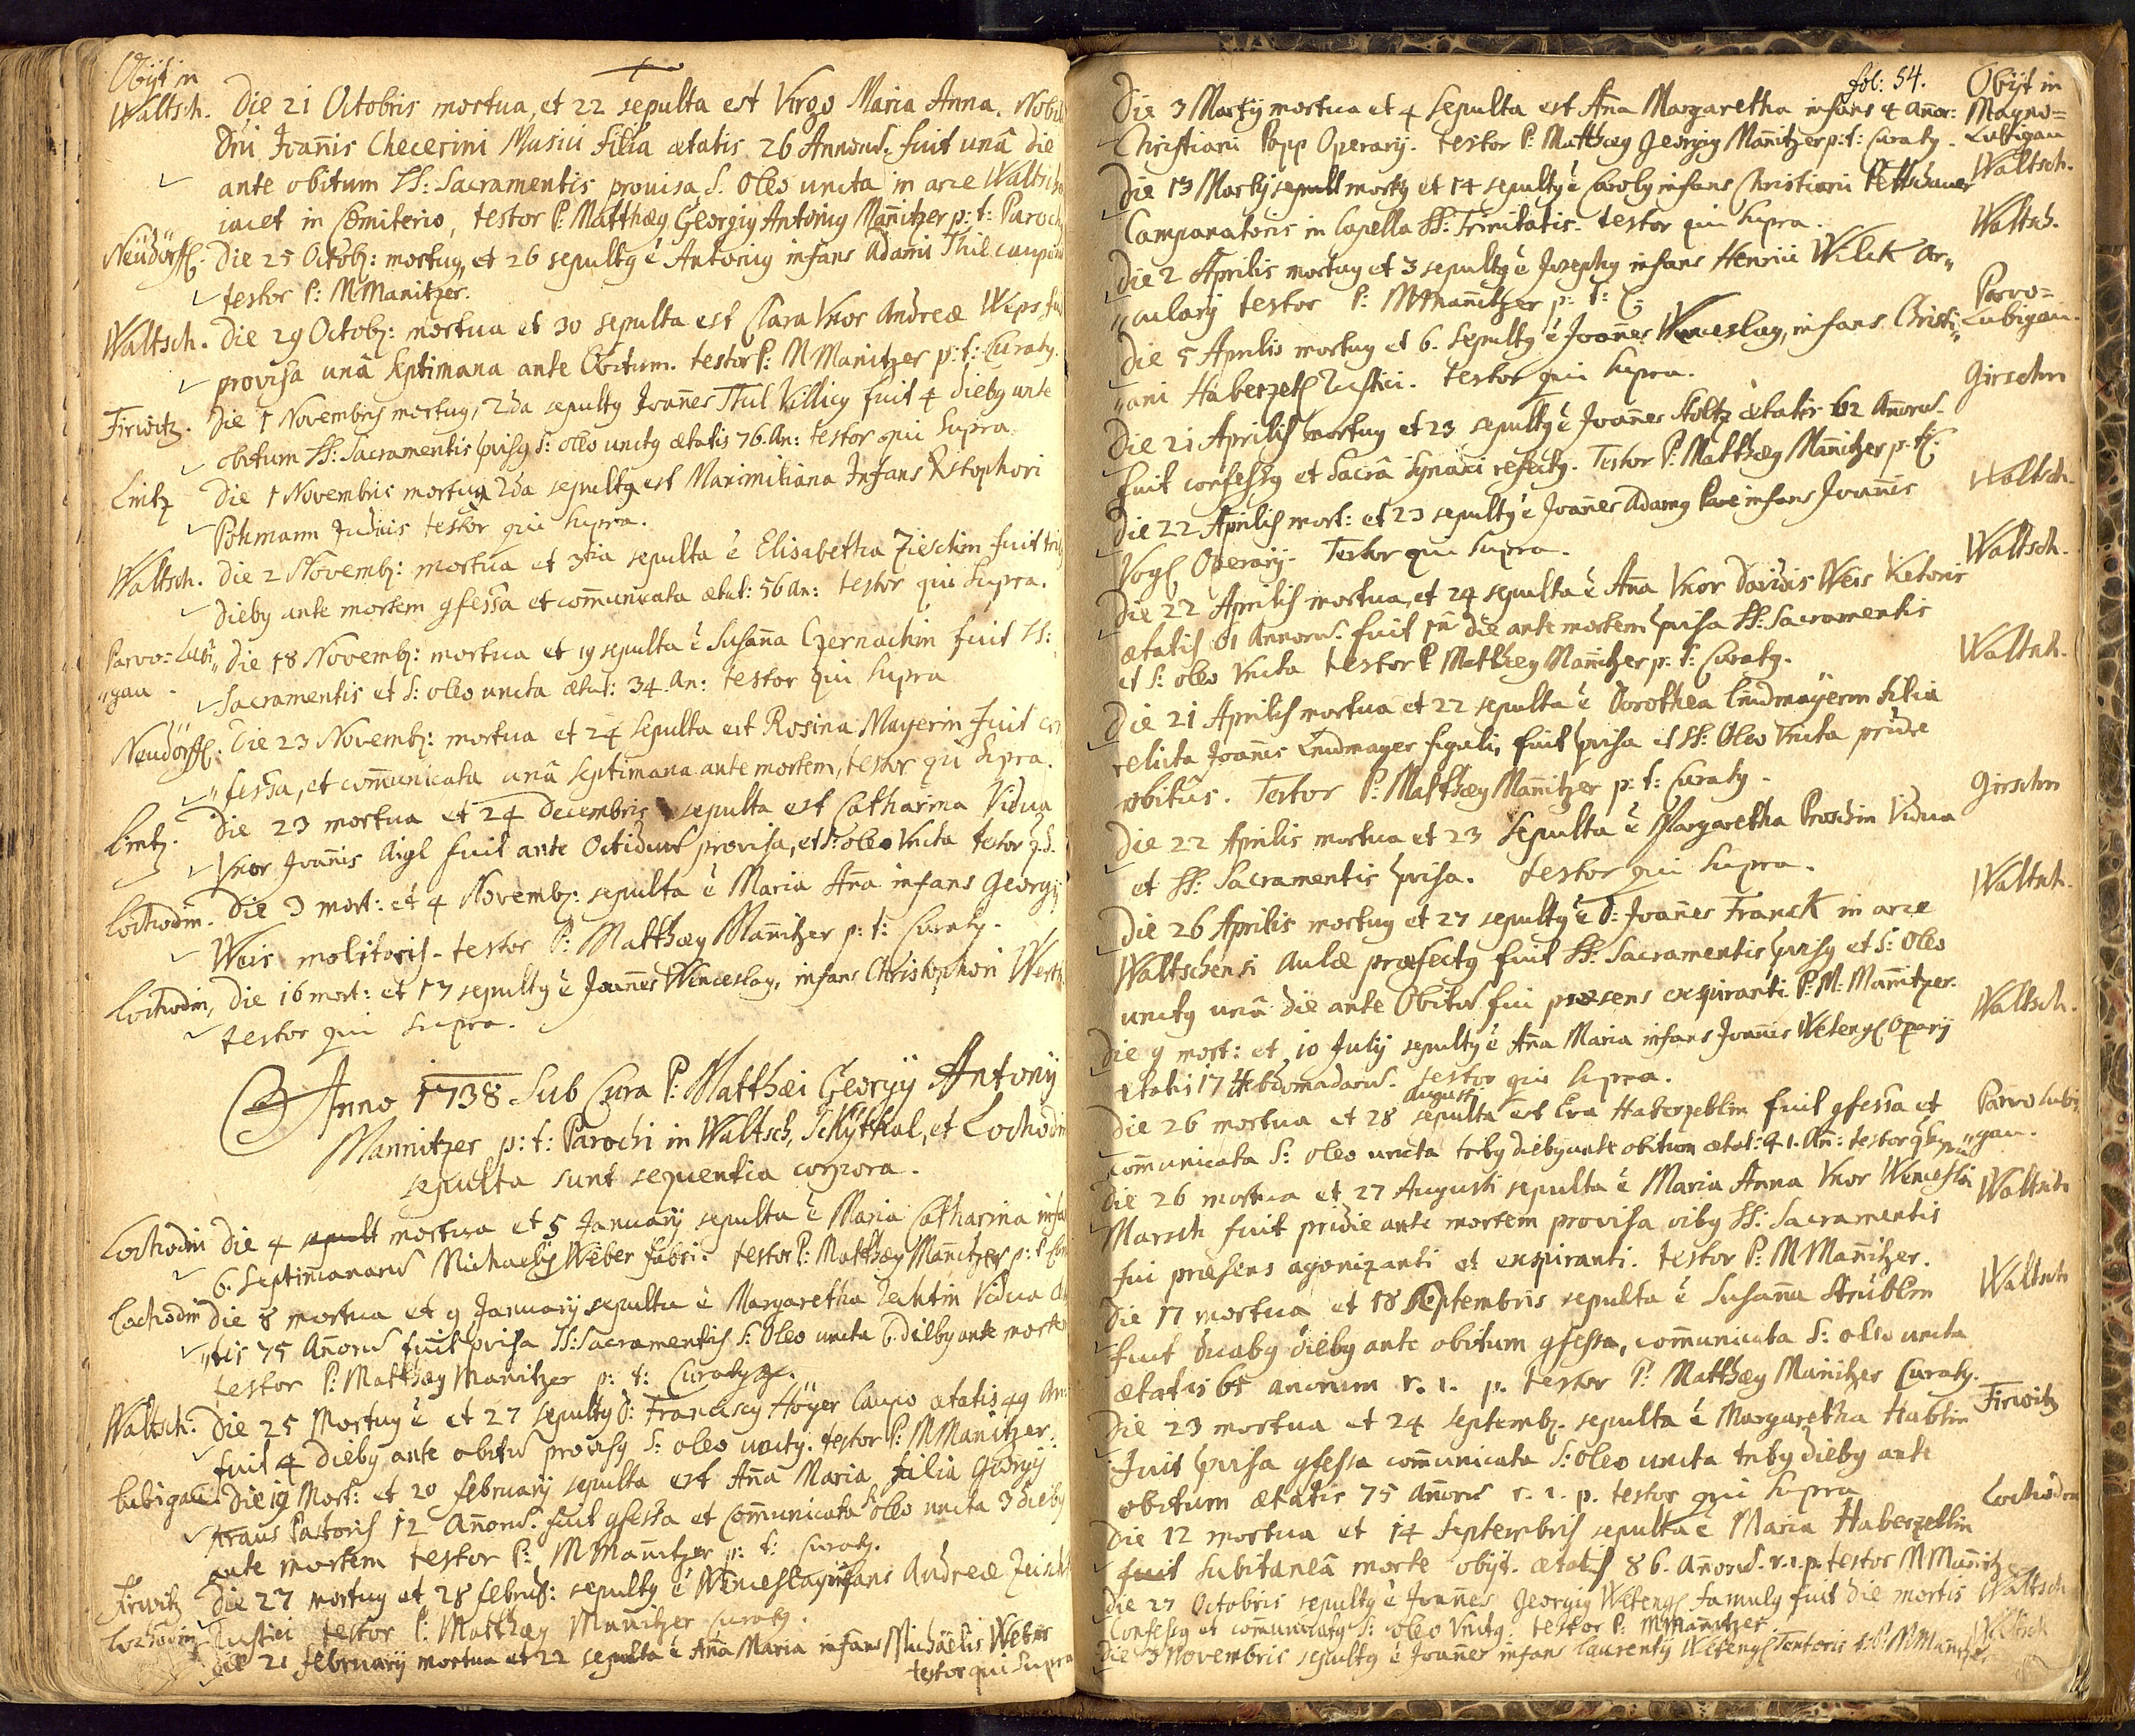 Obijt in
Waltsch. Die 21 Octobris mortua, et 22 sepulta est Virgo Maria Anna. Nobil
Dni Joannis Checerini Musici filia ætatis 26 Annorũ. fuit unâ die
ante obitum SS: Sacramentis provisa S: Oleo uncta in arce
iacet in Cœmiterio, testor P: Matthæy Georgiy Antoniy Mañitzer p: t: Paroch
Neüdörffl. Die 25 Octobr: mortuy, et 26 sepulty ẽ Antoniy infans Adami Thil
testor P: MManitzer.
Waltsch. Die 29 Octobr: mortua et 30 sepulta est Clara Uxor Andreæ Weps,
provisa unâ septimana ante Obitum. testor P: MManitzer p: t: Curaty.
Firwitz. Die 1 Novembris mortuy, 2da sepulty Joañes Thil Villicy fuit 4 dieby ante
obitum SS: Sacramentis pvisy S: oleo uncty ætatis 76. An: testor qui supra
Lintz Die 1 Novembris mortua 2da sepulta est Maximiliana Infans Xstophori
Pohmann Judicis testor qui supra.
Waltsch. Die 2 Novembr: mortua et 3tia sepulta ẽ Elisabetha Zieschin fuit
dieby ante mortem gfessa et com̃unicata ætat: 56 an: testor qui supra.
Parvo=Lubi„ Die 18 Novembr: mortua et 19 sepulta ẽ Susaña Czernackin fuit SS:
„gau. Sacramentis et S: oleo uncta ætat: 34. An: testor qui supra
Neudörffl. Die 23 Novembr: mortua et 24 sepulta est Rosina Mayerin fuit
„fessa, et com̃unicata unâ septimana ante mortem, testor qui supra.
Lintz. Die 23 mortua et 24 decembris sepulta est Catharina Vidua
Uxor Joañis Aigl fuit ante Octiduũ provisa, et S: oleo Uncta testor q. S.
Lochodin. Die 3 mort: et 4 Novembr: sepulta ẽ Maria Aña infans Georgij
Weis molitoris. testor P: Matthæy Mañitzer p: t: Curaty.
Lochodin, Die 16 mort: et 17 sepulty ẽ Joañes Wenceslay, infans Christophori
testor qui supra.
Anno 1738 Sub Cura P: Matthæi Georgij Antonij
Mannitzer p: t: Parochi in Waltsch, Schkytkal, et Lochodin
sepulta sunt sequentia corpora.
Lochodin Die 4 sepult mortua et 5 January sepulta ẽ Maria Catharina
6. Septimanarũ Michaelis Weber fabri. testor P: Matthæy Mañitzer p: t:
Lochodin Die 8 mortua et 9 January sepulta ẽ Margaretha Vidua
„tis 75 Añorũ fuit pvisa SS: Sacramentis S: Oleo uncta 6. dieby ante
testor P: Matthæy Manitzer p: t: Curaty
Waltsch: Die 25 Mortuy ẽ et 27 sepulty D: Franciscy Höyer Caupo ætatis 49 An:
fuit 4 dieby ante obitũ provisy S: oleo uncty. testor P: MManitzer.
Lubigau. Die 19 Mort: et 20 february sepulta est Aña Maria filia Georgij
Kraus Pastoris 12 Añorũ. fuit gfessa et Com̃unicata S: oleo uncta 3 dieby
ante mortem testor P: MMañitzer p: t: Curaty.
Firwitz Die 27 mortuy et 28 febru: sepulty ẽ Wenceslay infans Andreæ
Rustici testor P: Matthæy Mañitzer Curaty.
Lochodin Die 21 february mortua et 22 sepulta ẽ Aña Maria infans Michaelis Weber
testor qui supra
fol: 54. Obijt in
Die 3 Martij mortua et 4 sepulta est Aña Margaretha infans 4 añor: Magno=
Christiani Popp Operarij. testor P: Matthæy Georgiy Mañitzer p: t: Curaty. Lubigau
Die 13 Martij sepult morty et 14 sepulty ẽ Caroly infans Christiani Waltsch.
Campanatoris in Capella SS: Trinitatis. testor qui supra.
Die 2 Aprilis mortuy et 3 sepulty ẽ Josephy infans Henrici Wilck Waltsch.
testor P: MMañitzer p: t: C:
Die 5 Aprilis mortuy et 6. sepulty ẽ Joañes Wenceslay, infans Christi„ Parvo= Lubigau.
„ani Haberzetl Rustici. testor qui supra.
Die 21 Aprilis mortuy et 23 sepulty ẽ Joañes Stoltz ætatis 62 Añorũ. Girschin
fuit confessy et Sacrâ Synaxi refecty. Testor P: Matthæy Mañitzer p. t.
Die 22 Aprilis mort: et 23 sepulty ẽ Joañes Adamy infans Joañis Waltsch.
Vogl Operarij. Testor qui supra.
Die 22 Aprilis mortua, et 24 sepulta ẽ Aña Uxor Davidis Weis Waltsch.
ætatis 61 Annorũ. fuit die ante mortem pvisa SS: Sacramentis
et S: oleo Uncta testor P: Matthæy Mañitzer p: t: Curaty.
Die 21 Aprilis mortua et 22 sepulta ẽ Dorothea Lindmayerin filia Waltsch.
relicta Joañis Lindmayer figuli, fuit pvisa et SS: Oleo Uncta pridie
obitûs. Testor P: Matthæy Mañitzer p: t: Curaty.
Die 22 Aprilis mortua et 23 sepulta ẽ Margaretha Vidua Girschin
et SS: Sacramentis pvisa. testor qui supra.
Die 26 Aprilis mortuy et 27 sepulty ẽ D: Joañes Franck in arce Waltsch.
Waltschensi Aulæ præfecty fuit SS: Sacramentis pvisy et S: Oleo
uncty unâ die ante Obitũ fui præsens exspiranti P: M: Mañitzer.
Die 9 mort: et 10 July sepulty ẽ Aña Maria infans Joañis Wetengl Waltsch.
ætatis 17 Hebdomadarũ. testor qui supra.
Die 26 mortua et 28 augusti sepulta est Eva Haberzetlin fuit gfessa et Parvo Lubi
com̃unicata S: oleo uncta dieby ante obitum ætat: 41. An: testor „gau.
Die 26 mortua et 27 Augusti sepulta ẽ Maria Anna Uxor Wenceslai Waltsch
Marsch fuit pridie ante mortem provisa oiby SS: Sacramentis
fui præsens agonizanti et exspiranti. testor P: MMañitzer.
Die 17 mortua et 18 Septembris sepulta ẽ Susaña Strüblin Waltsch
fuit duaby dieby ante obitum gfessa, com̃unicata S: oleo uncta
ætatis 65 anorum r. i. p. testor P: Matthæy Mañitzer Curaty.
Die 23 mortua et 24 Septembr. sepulta ẽ Margaretha Hablin Firwitz
fuit pvisa gfessa com̃unicata S: oleo uncta triby dieby ante
obitum ætatis 75 añorũ r. i. p. testor qui supra
Die 12 mortua et 14 Septembris sepulta ẽ Maria Haberzetlin Lochodin
fuit subitaneâ morte obijt. ætatis 86. añorũ. r. i. p. testor MMañitz
Die 27 Octobris sepulty ẽ Joañes Georgiy Wetengl famuly fuit die mortis Waltsch
Confessy et com̃unicaty S: oleo Uncty. testor P: MMañitzer.
Die 3 Novembris sepulty ẽ Joañes infans Laurentij Wetengl t: P: MMañitzer Waltsch